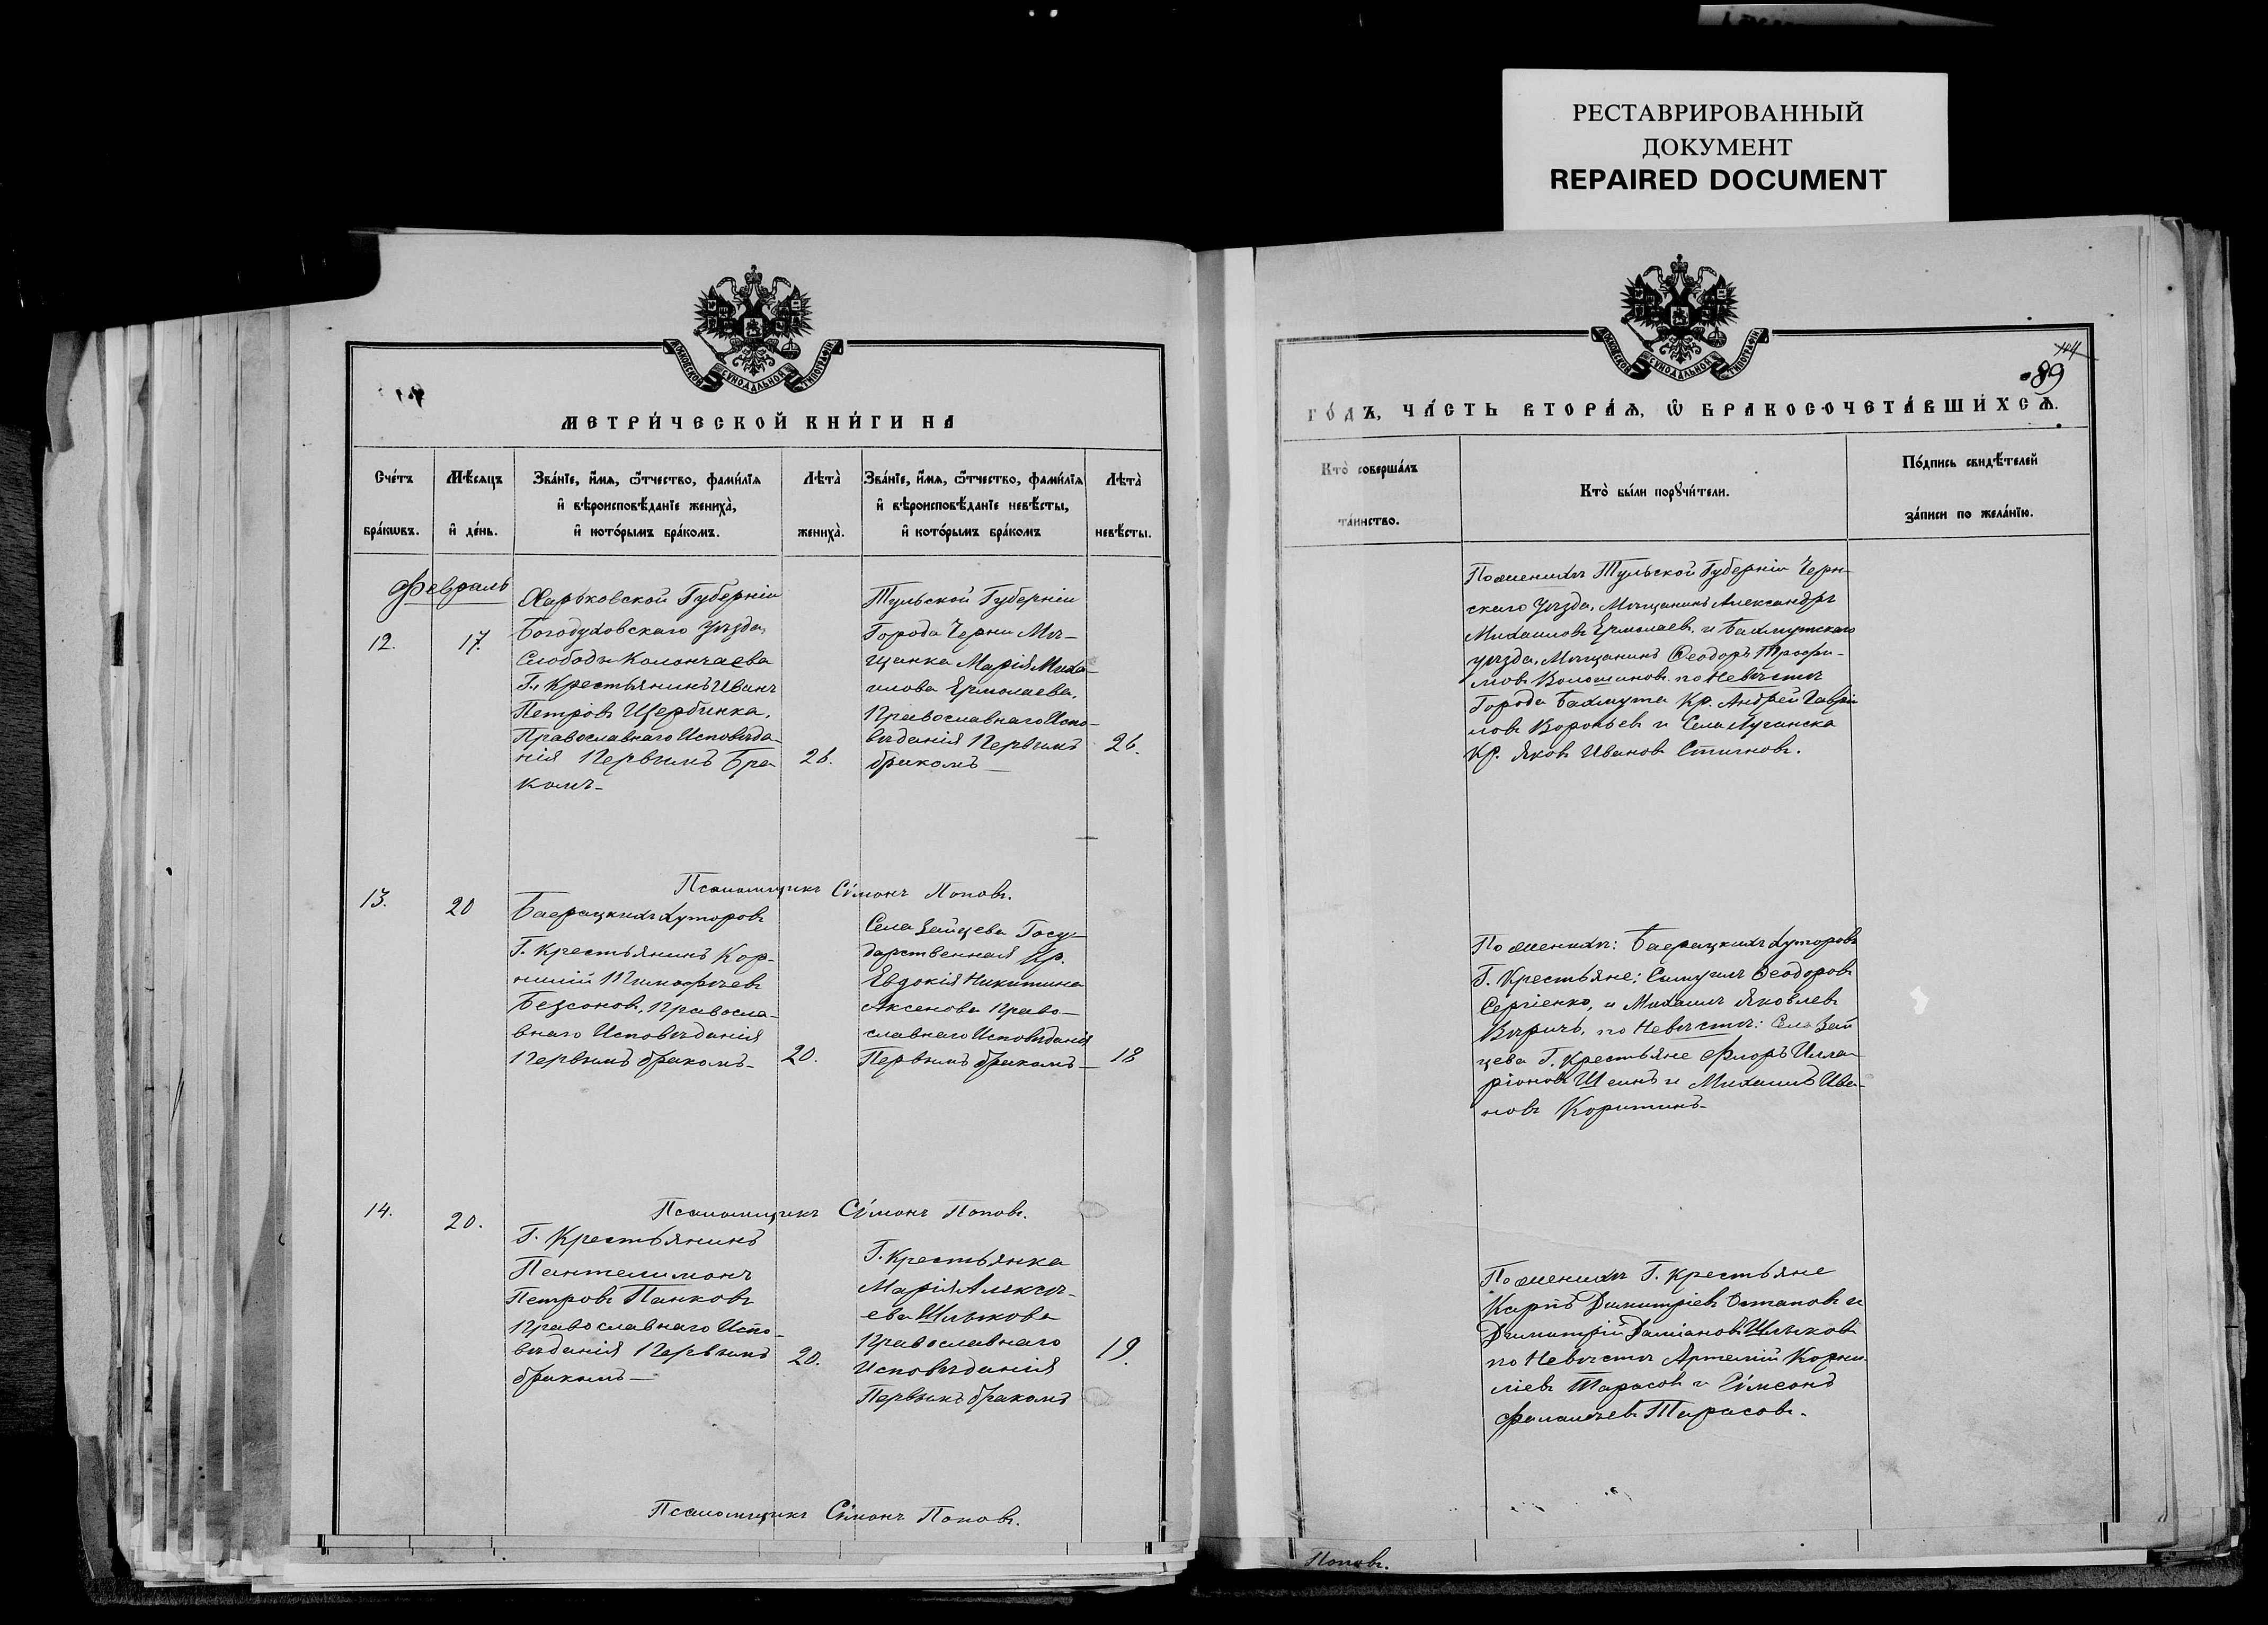 РЕСТАВРИРОВАННЫЙ
ДОКУМЕНТ
REPAIRED DOCUMENT
МОСКОВСКОЙ СУНОДАЛЬНОЙ ТИПОГРАФІИ
МЕТРИ́ЧЕСКОЙ КНИ́ГИ НА
Сче́тъ
бра́кѡвъ.
Мѣ́сяцъ
и҆ де́нь.
Зва́нїе, и҆́мѧ, ѻ҆́тчество, фами́лїѧ
и҆ вѣроисповѣ́данїе жениха̀,
и҆ кото́рымъ бра́комъ.
Лѣта̀
жениха̀.
Зва́нїе, и҆́мѧ, ѻ҆́тчество, фами́лїѧ
и҆ вѣроисповѣ́данїе невѣ́сты,
и҆ кото́рымъ бра́комъ
Лѣта̀
невѣ́сты.
Февраль
12.
17.
Харьковской Губерніи
Богодуховскаго Уѣзда,
Слободы Колончаева
Г. Крестьянинъ Иванъ
Петровъ Щербинка,
Православнаго Исповѣда-
нія Первымъ Бра
комъ-
28.
Тульской Губерніи
Города Черни Мѣ-
щанка Марія Миха-
илова Ермолаева,
Православнаго Испо-
вѣданія Первымъ
бракомъ
26.
Псаломщикъ Сѵмонъ Поповъ.
13.
20
Баерацкихъ Хуторовъ
Г. Крестьянинъ Кор-
нилій Тимофѣевъ
Безсоновъ, Правосла-
внаго Исповѣданія
Первымъ бракомъ-
20.
Села Зайцева Госу-
дарственная Кр.
Евдокія Никитина
Аксенова Право-
славнаго Исповѣданія
Первымъ бракомъ-
18
Псаломщикъ Сѵмонъ Поповъ.
14.
20.
Г. Крестьянинъ
Пантелимонъ
Петровъ Панковъ
Православнаго Испо-
вѣданія Первымъ
бракомъ-
20.
Г. Крестьянка
Марія Алексѣ-
ева Шлыкова
Православнаго
Исповѣданія
Первымъ бракомъ
19.
Псаломщикъ Сѵмонъ Поповъ.
МОСКОВСКОЙ СУНОДАЛЬНОЙ ТИПОГРАФІИ
89
ГО́ДЪ, ЧА́СТЬ ВТОРА́Ѧ, Ѡ҆ БРАКОСОЧЕТА́ВШИ́ХСѦ.
Кто̀ соверша́лъ
та́инство.
Кто̀ бы́ли порꙋчи́тели.
По́дпись свидѣ́телей
за́писи по жела́нїю.
По женихѣ Тульской Губерніи Черн-
скаго Уѣзда, Мѣщанинъ Александръ
Михаиловъ Ермолаевъ, и Бахмутскаго
уѣзда, Мѣщанинъ Ѳеодоръ Трофи-
мовъ Волошиновъ. по Невѣстѣ
Города Бахмута Кр. Андрей Гаврі
ловъ Воробьевъ и Села Луганска
Кр. Яковъ Ивановъ
По женихѣ: Баерацкихъ Хуторовъ
Г. Крестьяне: Самуилъ Ѳеодоровъ
Сергіенко, и Михаилъ Яковлевъ
по Невѣстѣ: Села Зай
цева Г. Крестьяне Флоръ Илла-
ріоновъ Шеинъ и Михаилъ Ива-
новъ
По женихѣ Г. Крестьяне
Карпъ Димитріевъ Остаповъ и
Димитрій Даміановъ Шлыковъ
по Невѣстѣ Артемій Корни-
ліевъ Тарасовъ и Сѵмеонъ
Тарасовъ.
Поповъ.